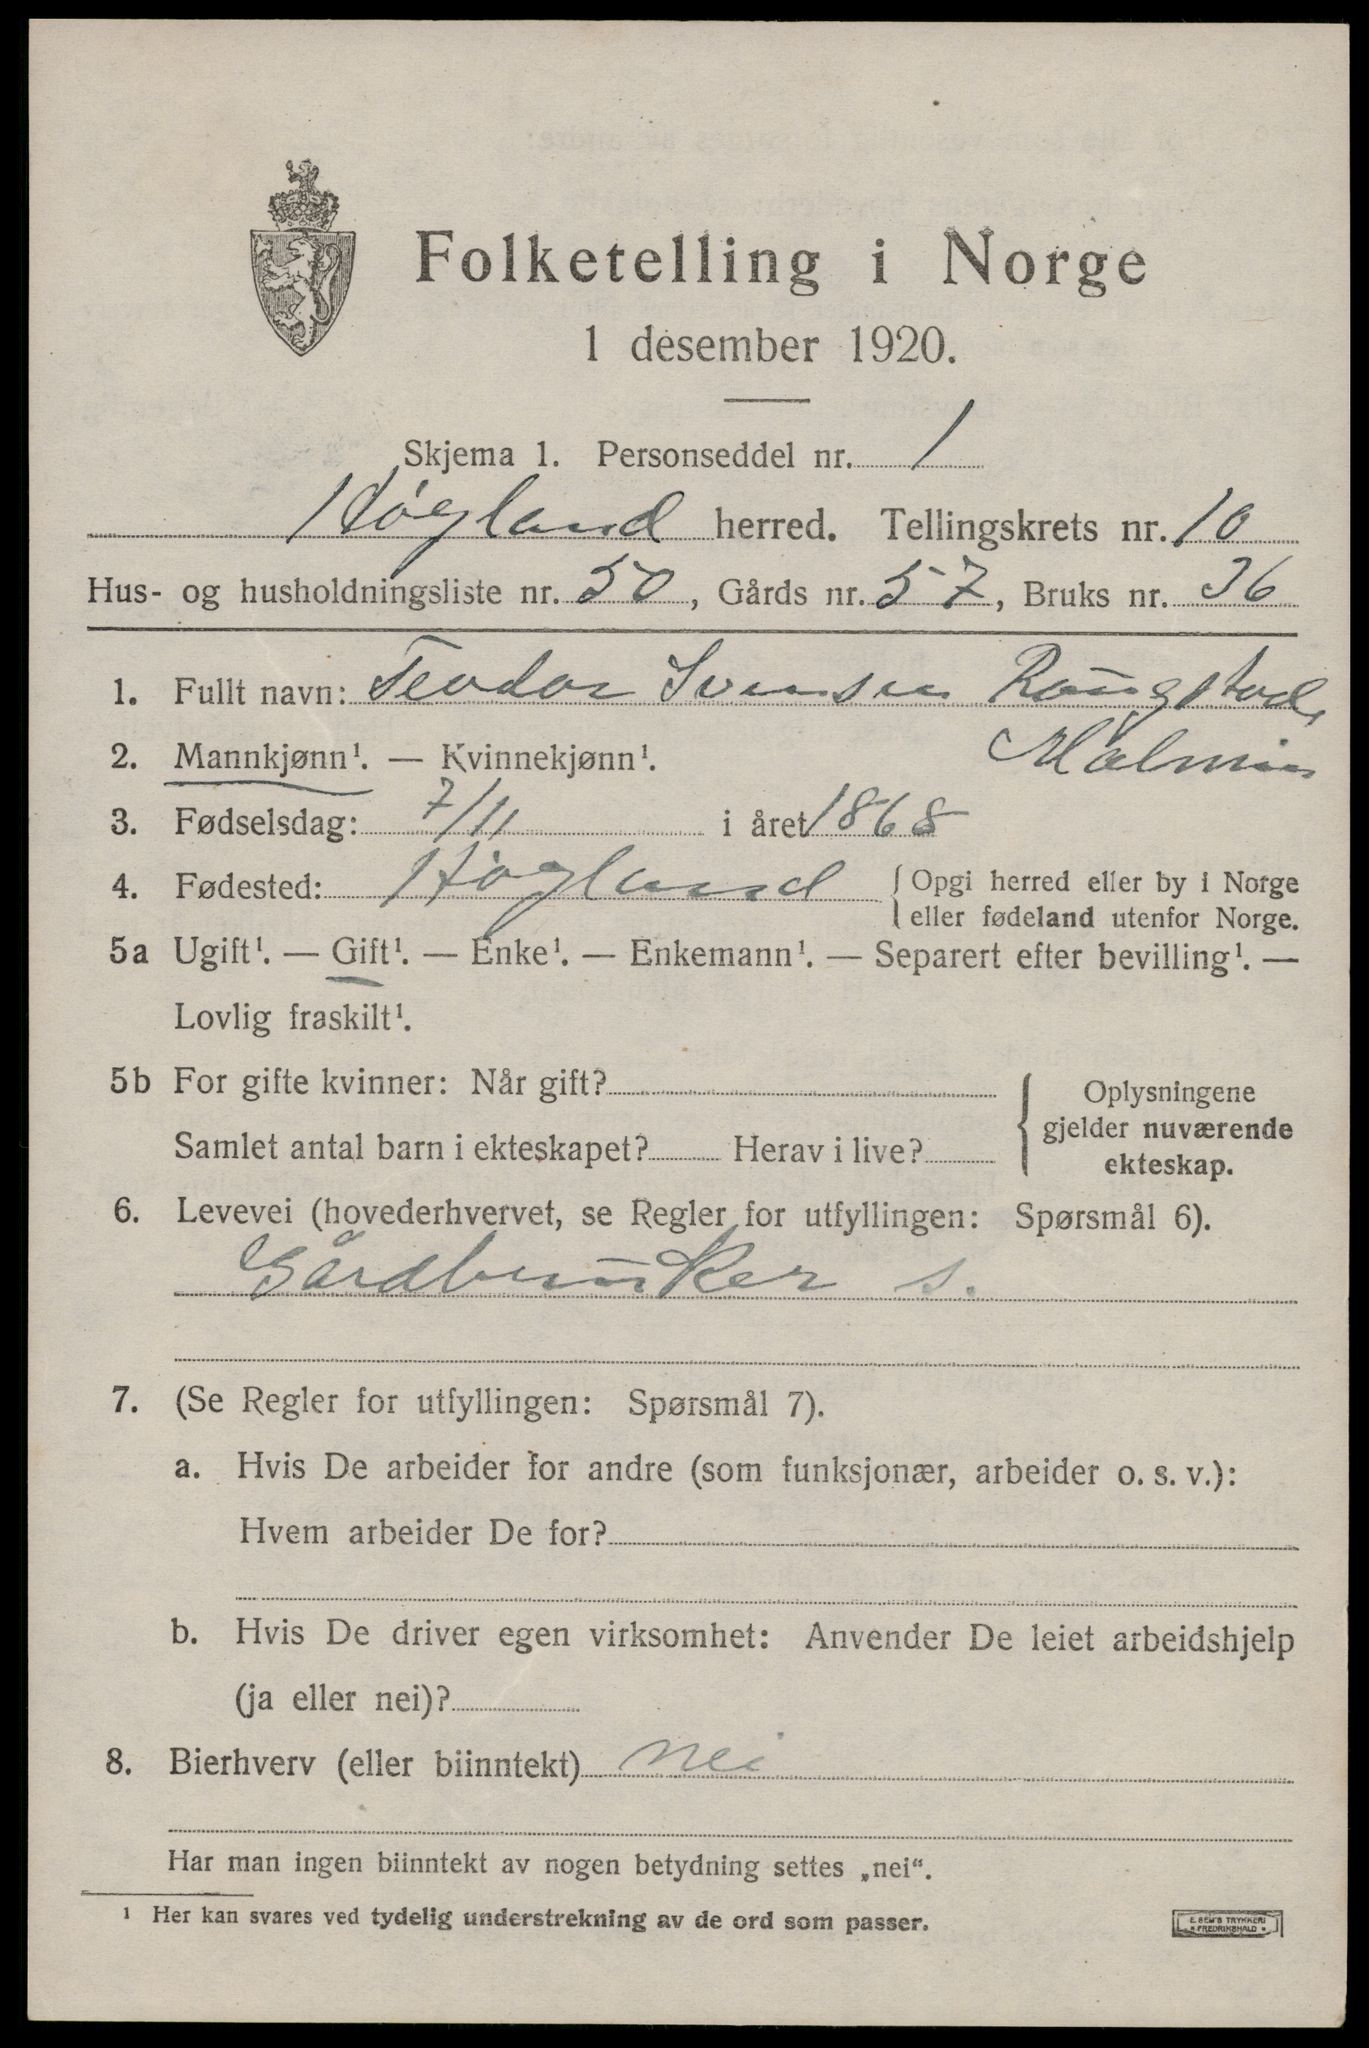 Folketelling i Norge
1 desember 1920.
Skjema 1. Personseddel nr. 1
Høgland herred. Tellingskrets nr. 10
Hus- og husholdningsliste nr. 50, Gårds nr. 57, Bruks nr. 36
1. Fullt navn: Teodor Svensen Raugstad,
Malmin
2. Mannkjønn¹. — Kvinnekjønn¹.
3. Fødselsdag: 7/11 i året 1868
4. Fødested: Høgland { Opgi herred eller by i Norge
eller fødeland utenfor Norge.
5a Ugift¹. — Gift¹. — Enke¹. — Enkemann¹. — Separert efter bevilling¹. —
Lovlig fraskilt¹.
5b For gifte kvinner: Når gift?
Samlet antal barn i ekteskapet? Herav i live?
Oplysningene
gjelder nuværende
ekteskap.
6. Levevei (hovederhvervet, se Regler for utfyllingen: Spørsmål 6).
Gårdbruker s.
7. (Se Regler for utfyllingen: Spørsmål 7).
a. Hvis De arbeider for andre (som funksjonær, arbeider o. s. v.):
Hvem arbeider De for?
b. Hvis De driver egen virksomhet: Anvender De leiet arbeidshjelp
(ja eller nei)?
8. Bierhverv (eller biinntekt) nei
Har man ingen biinntekt av nogen betydning settes „nei“.
¹ Her kan svares ved tydelig understrekning av de ord som passer.
E. SEM'S TRYKKERI
• FREDRIKSHALD •